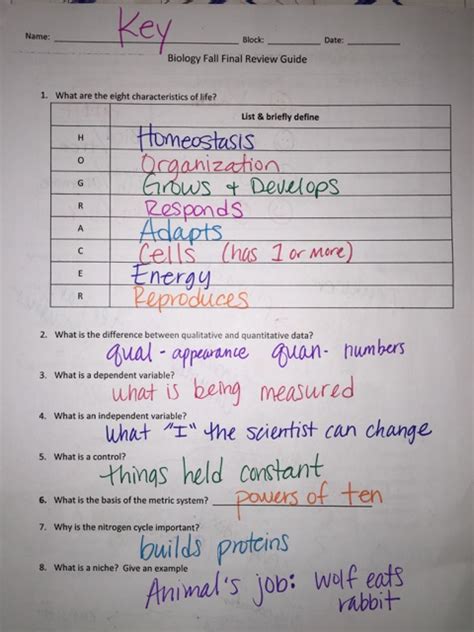 Name: Key Block: Date:
Biology Fall Final Review Guide
1. What are the eight characteristics of life?
List & briefly define
H Homeostasis
O Organization
G Grows + Develops
R Responds
A Adapts
C Cells (has 1 or more)
E Energy
R Reproduces
2. What is the difference between qualitative and quantitative data?
qual - appearance quan - numbers
3. What is a dependent variable?
what is being measured
4. What is an independent variable?
What "I" the scientist can change
5. What is a control?
things held constant
6. What is the basis of the metric system? powers of ten
7. Why is the nitrogen cycle important?
builds proteins
8. What is a niche? Give an example
Animal's job: wolf eats
rabbit